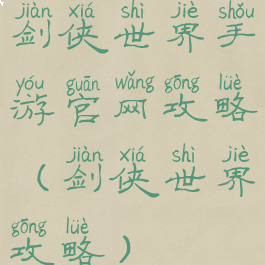 jiàn xiá shì jiè shǒu
剑侠世界手
yóu guān wǎng gōng lüè
游官网攻略
jiàn xiá shì jiè
（剑侠世界
gōng lüè
攻略）